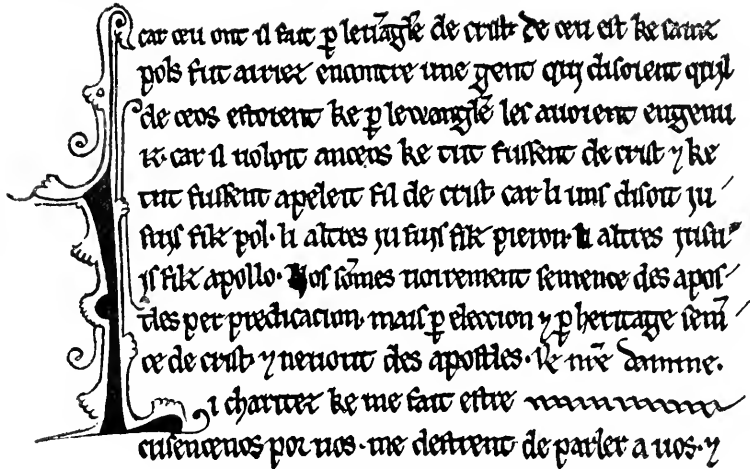 car ceu ont il fait p leuāgle de crist· De ceu est ke sainz
pols fut airiez encontre une gent qui disoient quil
de ceos estoient ke p lewangle les auoient engenu
iz· car il uoloit anceos ke tut fussent de crist ⁊ ke
tut fussent apeleit fil de crist car li uns disoit ju
suys filz pol· li altres ju suys filz pieron· li altres ju su
is filz apollo· Nos sōmes uoirement semence des apos
tles per predicacion· mais p eleccion ⁊ p heritage sem̄
ce de crist ⁊ des apostles· nr̄e
Li chariteiz ke me fait estre
cusencenos por uos· me destrent de parler a uos· ⁊